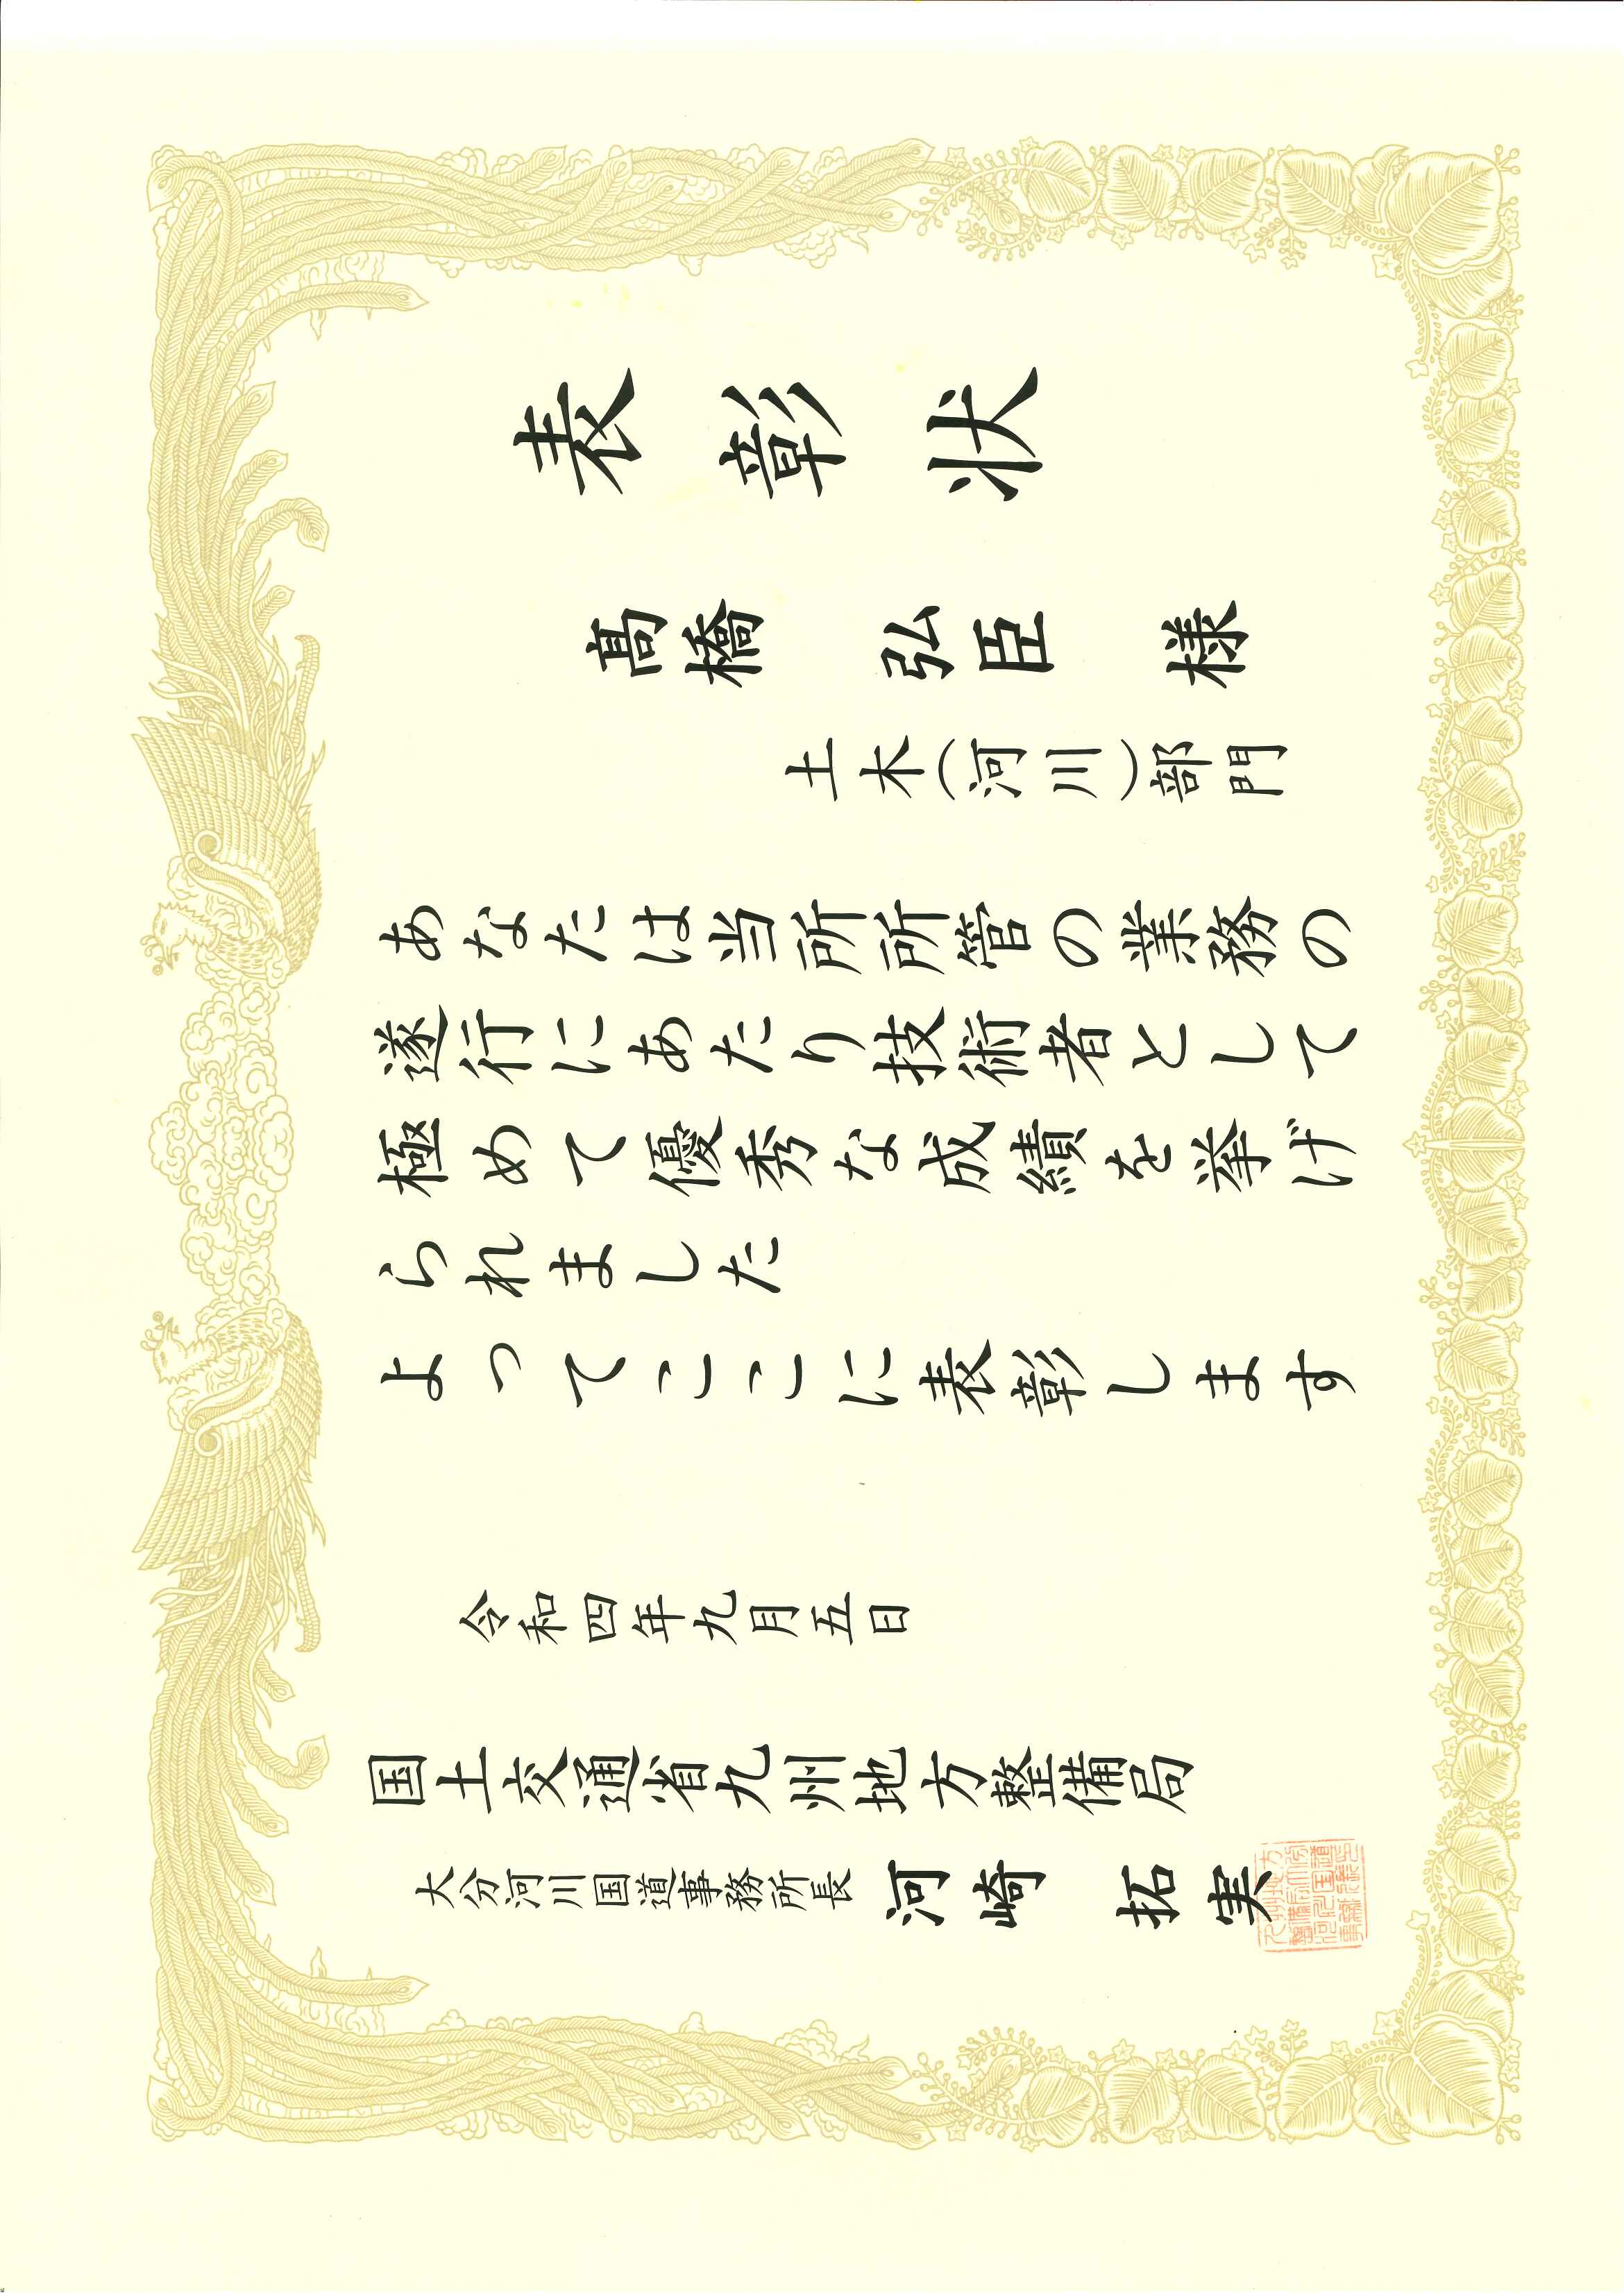 表彰状
髙橋 弘臣 様
土木(河川)部門
あなたは当所所管の業務の
遂行にあたり技術者として
極めて優秀な成績を挙げ
られました
よってここに表彰します
令和四年九月五日
国土交通省九州地方整備局
大分河川国道事務所長 河崎 拓実